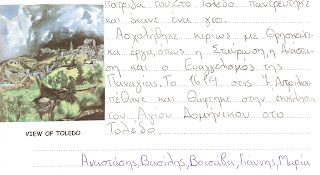 πατρίδα του. Στο Τολέδο παντρεύτηκε
και έκανε ένα γιο.
Ασχολήθηκε κυρίως με θρησκευτι-
κά έργα, όπως η Σταύρωση, η Ανάστα-
ση και ο Ευαγγελισμός της
Παναγίας. Το 1614 στις 7 Απριλίου
πέθανε και θάφτηκε στην εκκλησία
του Αγίου Δομήνικου στο
Τολέδο.
VIEW OF TOLEDO
Αναστάσης, Βασίλης, Βοισάβα, Γιάννης, Μαρία